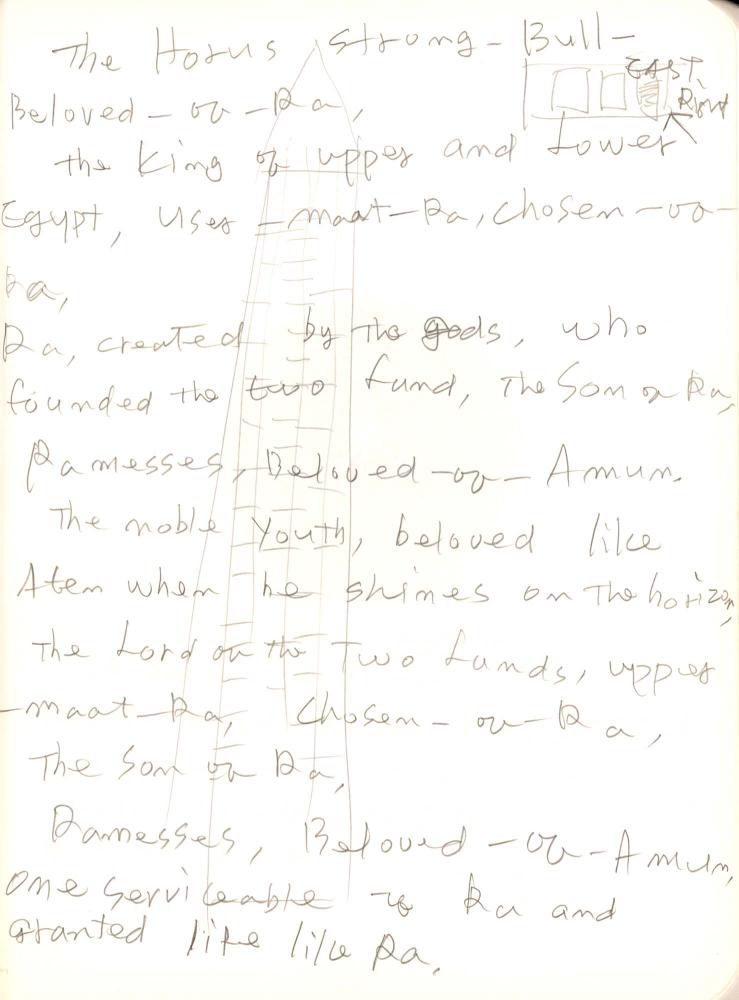 The Horus strong-Bull-
EAST
Beloved-of-Ra,
Right
the King of upper and Lower
Egypt, User-maat-Ra, chosen-of-
Ra,
Ra, created by the gods, who
founded the two Land, The Son of Ra,
Ramesses, Beloved-of-Amun.
The noble Youth, beloved like
Aten when he shines on The horizon,
The Lord of the Two Lands, upper
-maat-Ra, Chosen-of-Ra,
The Son of Ra,
Ramesses, Beloved-of-Amun,
One serviceable to Ra and
granted life like Ra.